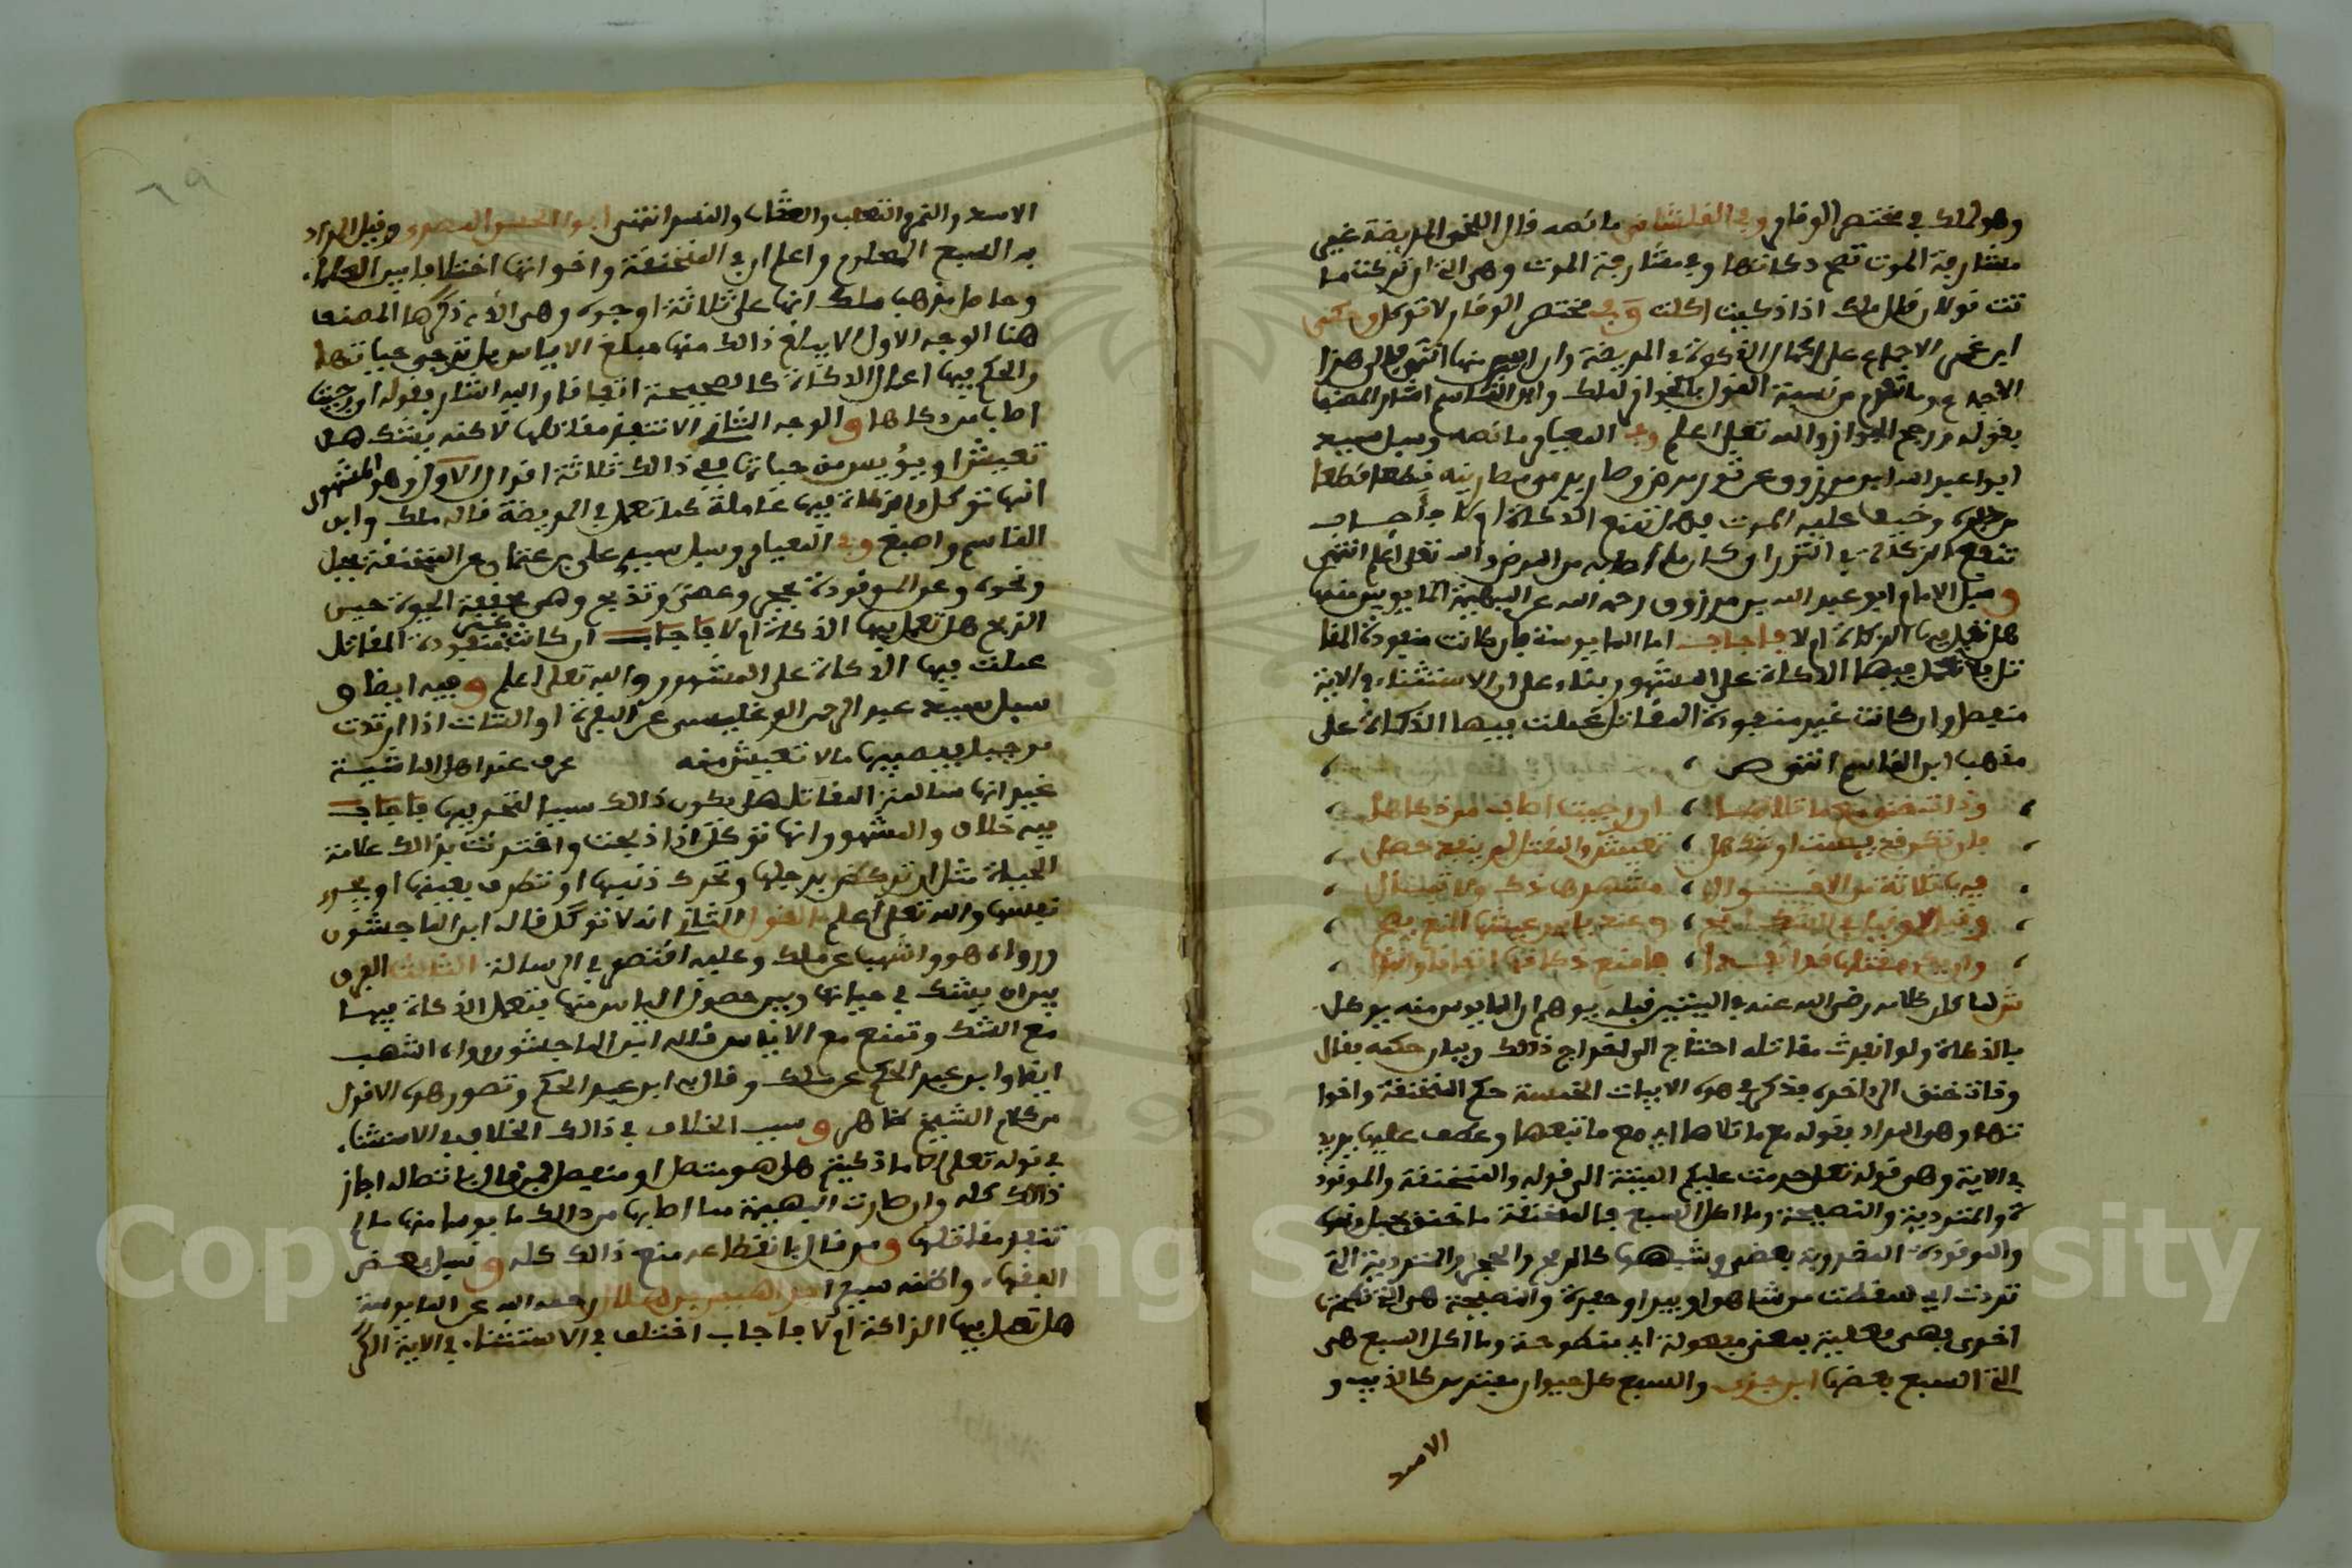 وهو لمالك في مختصر الوقار وفي القلشاني ما نصه قال اللخمي المريضة غير
مشارفة الموت تصح ذكاتها وفي مشارفة الموت وهي التي ان تركت ما
تت قولان قال ملك اذا ذكيت اكلت وفي مختصر الوقار لا توكل وحكى
الاجماع على اعمال الذكوة في المريضة وان ايس منها انتهى هذا
الاجماع وما تقدم من نسبة القول بالجواز لملك وابن القاسم اشار المصنف
بقوله ورجح الجواز والله تعلى اعلم وفي المعيار ما نصه وسيل سيد
ابوا عبد الله ابن مرزوق عن ثور مرض وصار يرمي مصارينه قطعا قطعا
من جوفه وخيف عليه الموت فهل تنفع الذكاة ام لا فأجاب
تنفع الذكاة في الثور ان كان ما اصابه من المرض والله تعلى اعلم انتهى
وسيل الامام ابو عبد الله بن مرزوق رحمه الله عن البهيمة المايوس منها
هل تعمل فيها الذكاة ام لا فاجاب اما المايوسة فان كانت منفوذة المقا
تل فلا تعمل فيها الذكاة على المشهور بناء على ان الاستثناء في الاية
منفصل وان كانت غير منفوذة المقاتل عملت فيها الذكاة على
مذهب ابن القاسم انتهى ص
وذات خنق مع ما تلاها ، ان رجيت اطاب من ذكاها
فيها ثلاثة من الاقوال ، مشهورها ذك ولا تبال
وقيل لا وقيل في الشك ابح ،
وان يكن مقتلها قد انفذا ، فامنع ذكاتها اتفاقا
ش لما كان كلامه رضي الله عنه في البيتين قبله يوهم ان المايوس منه يوكل
بالذكاة ولو انفذت مقاتله احتاج الى اخراج ذالك وبيان حكمه فقال
وذات خنق الى اخره فذكر في هذه الابيات الخمسة حكم المنخنقة واخوا
تها وهو المراد بقوله مع ما تلاها اي مع ما تبعها وعطف عليها يريد
في الاية وهي قوله تعلى حرمت عليكم الميتة الى قوله والمنخنقة والموقوذ
ة والمتردية والنطيحة وما اكل السبع فالمنخنقة ما خنق بحبل ونحوه
والموقوذة المضروبة بعصى وشبهها كالرمح والحجر والمتردية التي
تردت اي سقطت من شاهق او بير او حفرة والنطيحة هي التي نطحتها
اخرى فهي فعيلة بمعنى مفعولة اي منطوحة وما اكل السبع هي
التي اكل السبع بعضها ابن جزي والسبع كل حيوان مفترس كالذيب و
الاسد
٦٩
الاسد والنمر والثعلب والعقاب والنسر انتهى ابوا الحسن الصغير وقيل المراد
به السبع المعلوم واعلم ان في المنخنقة واخواتها اختلافا بين العلماء
وحاصل مذهب ملك انها على ثلاثة اوجه وهي الان ذكرها المصنف
هنا الوجه الاول ان لا يبلغ ذالك منها مبلغ الاياس بل ترجى حياتها
والحكم فيها اعمال الذكاة كالصحيحة اتفاقا واليه اشار بقوله ان رجيت
اطاب من ذكاها والوجه الثاني ان لا تنفذ مقاتلها لاكنه يشك هل
تعيش او يؤيس من حياتها ففي ذالك ثلاثة اقوال الاول وهو المشهور
انها توكل والذكاة فيها عاملة كما تعمل في المريضة قاله ملك وابن
القاسم واصبغ وفي المعيار وسيل سيد علي بن عثمان عن المنخنقة بحبل
ونحوه وعن الموقوذة بحجر وعصى وتذبح وهي محققة الحيوة حين
الذبح هل تعمل فيها الذكاة ام لا فاجاب ان كانت غير منفوذة المقاتل
عملت فيها الذكاة على المشهور والله تعلى اعلم وفيه ايضا و
سيل سيد عبد الرحمن الوغليسي عن البقرة او الشات اذا تردت
من جبل فيصيبها ما لا تعيش منه عرف عند اهل الماشية
غير انها سالمة المقاتل هل يكون ذالك سببا لتحريمها فاجاب
فيه خلاف والمشهور انها توكل اذا ذبحت واقترنت بذالك علامة
الحياة مثل ان تركض برجلها وتحرك ذنبها او تطرف بعينها او يجري
نفسها والله تعلى اعلم القول الثاني انه لا توكل قاله ابن الماجشون
ورواه هو واشهب عن ملك وعليه اقتصر في الرسالة الثالث الفرق
بين ان يشك في حياتها وبين حصول الياس منها فتعمل الذكاة فيها
مع الشك وتمنع مع الاياس قاله ابن الماجشون ورواه اشهب
ايضا وابن عبد الحكم عن ملك وقال به ابن عبد الحكم وتصور هذه الاقوال
من كلام الشيخ ظاهر وسبب الخلاف في ذالك الخلاف في الاستثناء
في قوله تعلى الا ما ذكيتم هل هو متصل او منفصل فمن قال باتصاله اجاز
ذالك كله وان صارت البهيمة مما اصابها من ذالك مايوسا منها ما لم
تنفذ مقاتلها ومن قال بانقطاعه منع ذالك كله وسيل بعض
الفقهاء واظنه سيد رحمه الله عن المايوسة
هل تعمل فيها الذكاة ام لا فاجاب اختلف في الاستثناء في الاية الكر